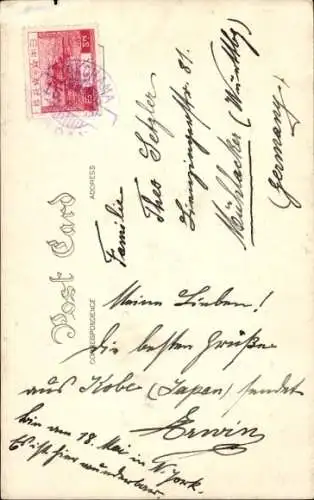 Post Card
CORRESPONDENCE
ADDRESS
Familie
Theo Setzler
Lienzingerstr. 81.
Mühlacker (Württbg)
Germany
Meine Lieben!
Die besten Grüße
aus Kobe (Japan) sendet
Erwin
bin am 18. Mai in N. York
Es ist hier wunderbar.